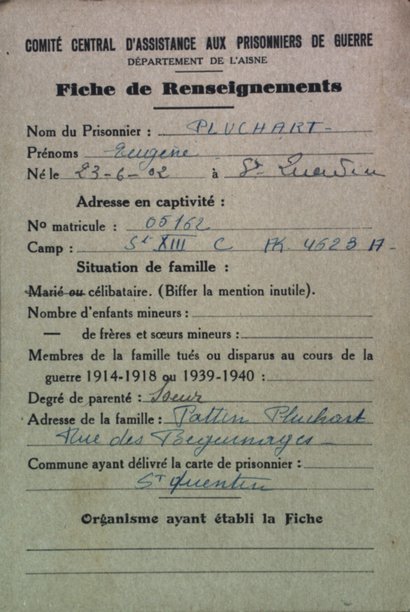 COMITÉ CENTRAL D'ASSISTANCE AUX PRISONNIERS DE GUERRE
DÉPARTEMENT DE L'AISNE
Fiche de Renseignements
Nom du Prisonnier : PLUCHART
Prénoms Eugène
Né le 23-6-02 à St Quentin
Adresse en captivité :
No matricule : 05162
Camp : St XIII C AK 4623 A
Situation de famille :
Marié ou célibataire. (Biffer la mention inutile).
Nombre d'enfants mineurs :
— de frères et sœurs mineurs :
Membres de la famille tués ou disparus au cours de la
guerre 1914-1918 ou 1939-1940 :
Degré de parenté : Soeur
Adresse de la famille : Pottin Pluchart
Rue des Béguinages
Commune ayant délivré la carte de prisonnier :
St Quentin
Organisme ayant établi la Fiche